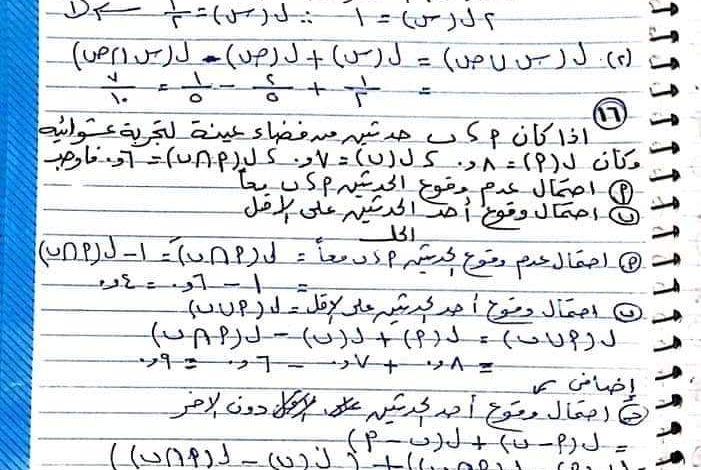 ٢ ل(س) = ١ ∴ ل(س) = ١/٢
(٢) ل(س ∪ ص) = ل(س) + ل(ص) - ل(س ∩ ص)
= ١/٢ + ٢/٥ - ١/٥ = ٧/١٠
(١٦)
اذا كان ٩ ، ب حدثين من فضاء عينة لتجربة عشوائيه
وكان ل(٩) = ٨و٠ ، ل(ب) = ٧و٠ ، ل(٩ ∩ ب) = ٦و٠ فاوجد
(٩) احتمال عدم وقوع الحدثين ٩ ، ب معاً
(ب) احتمال وقوع أحد الحدثين على الاقل
الحل
(٩) احتمال عدم وقوع الحدثين ٩ ، ب معاً = ل(٩ ∩ ب)َ = ١ - ل(٩ ∩ ب)
= ١ - ٦و٠ = ٤و٠
(ب) احتمال وقوع أحد الحدثين على الاقل = ل(٩ ∪ ب)
ل(٩ ∪ ب) = ل(٩) + ل(ب) - ل(٩ ∩ ب)
= ٨و٠ + ٧و٠ - ٦و٠ = ٩و٠
إضافى
(ج) احتمال وقوع أحد الحدثين دون الاخر
= ل(٩ - ب) + ل(ب - ٩)
ل(٩ ∩ ب)) + (ل(ب) - ل(٩ ∩ ب))